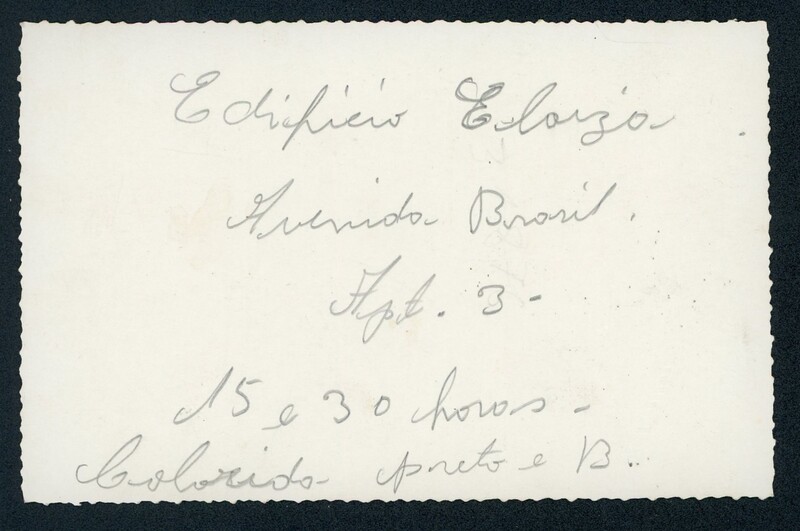 Edificio Eloiza
Avenida Brasil.
Apt. 3-
15 e 30 horas-
Colorida preto e B..